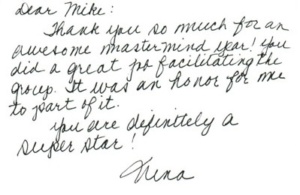 Dear Mike:
Thank you so much for an
awesome mastermind year! You
did a great job facilitating the
group. It was an honor for me
to part of it.
You are definitely a
super star!
Nina